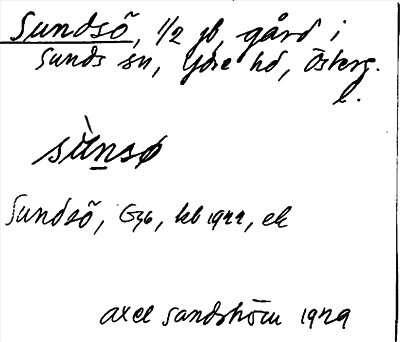 Sundsö, 1/2 jb, gård i
Sunds sn, Ydre hd, Österg.
l.
sùnsø
Sundsö, G36, kb 1922, ek
Axel Sandström 1929